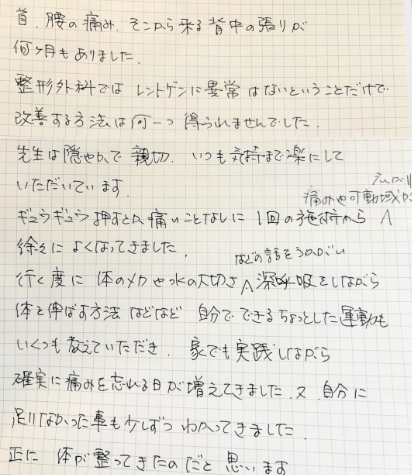 首、腰の痛み、そこから来る背中の張りが
何ヶ月もありました。
整形外科では レントゲンに異常はないということだけで
改善する方法は何一つ得られませんでした。
先生は隠やかで 親切、いつも気持まで楽にして
いただいています。
痛みや可動域が
ギュウギュウ押すとか痛いことなしに 1回の施術から ∧
徐々に よくなってきました。
などの話をうかがい
行く度に 体のメカや水の大切さ∧深呼吸をしながら
体を伸ばす方法 などなど 自分で できるちょっとした運動も
いくつも教えていただき、家でも実践しながら
確実に痛みを忘れる日が増えてきました。又、自分に
足りなかった事も少しずつ わかってきました。
正に 体が整ってきたのだと 思います